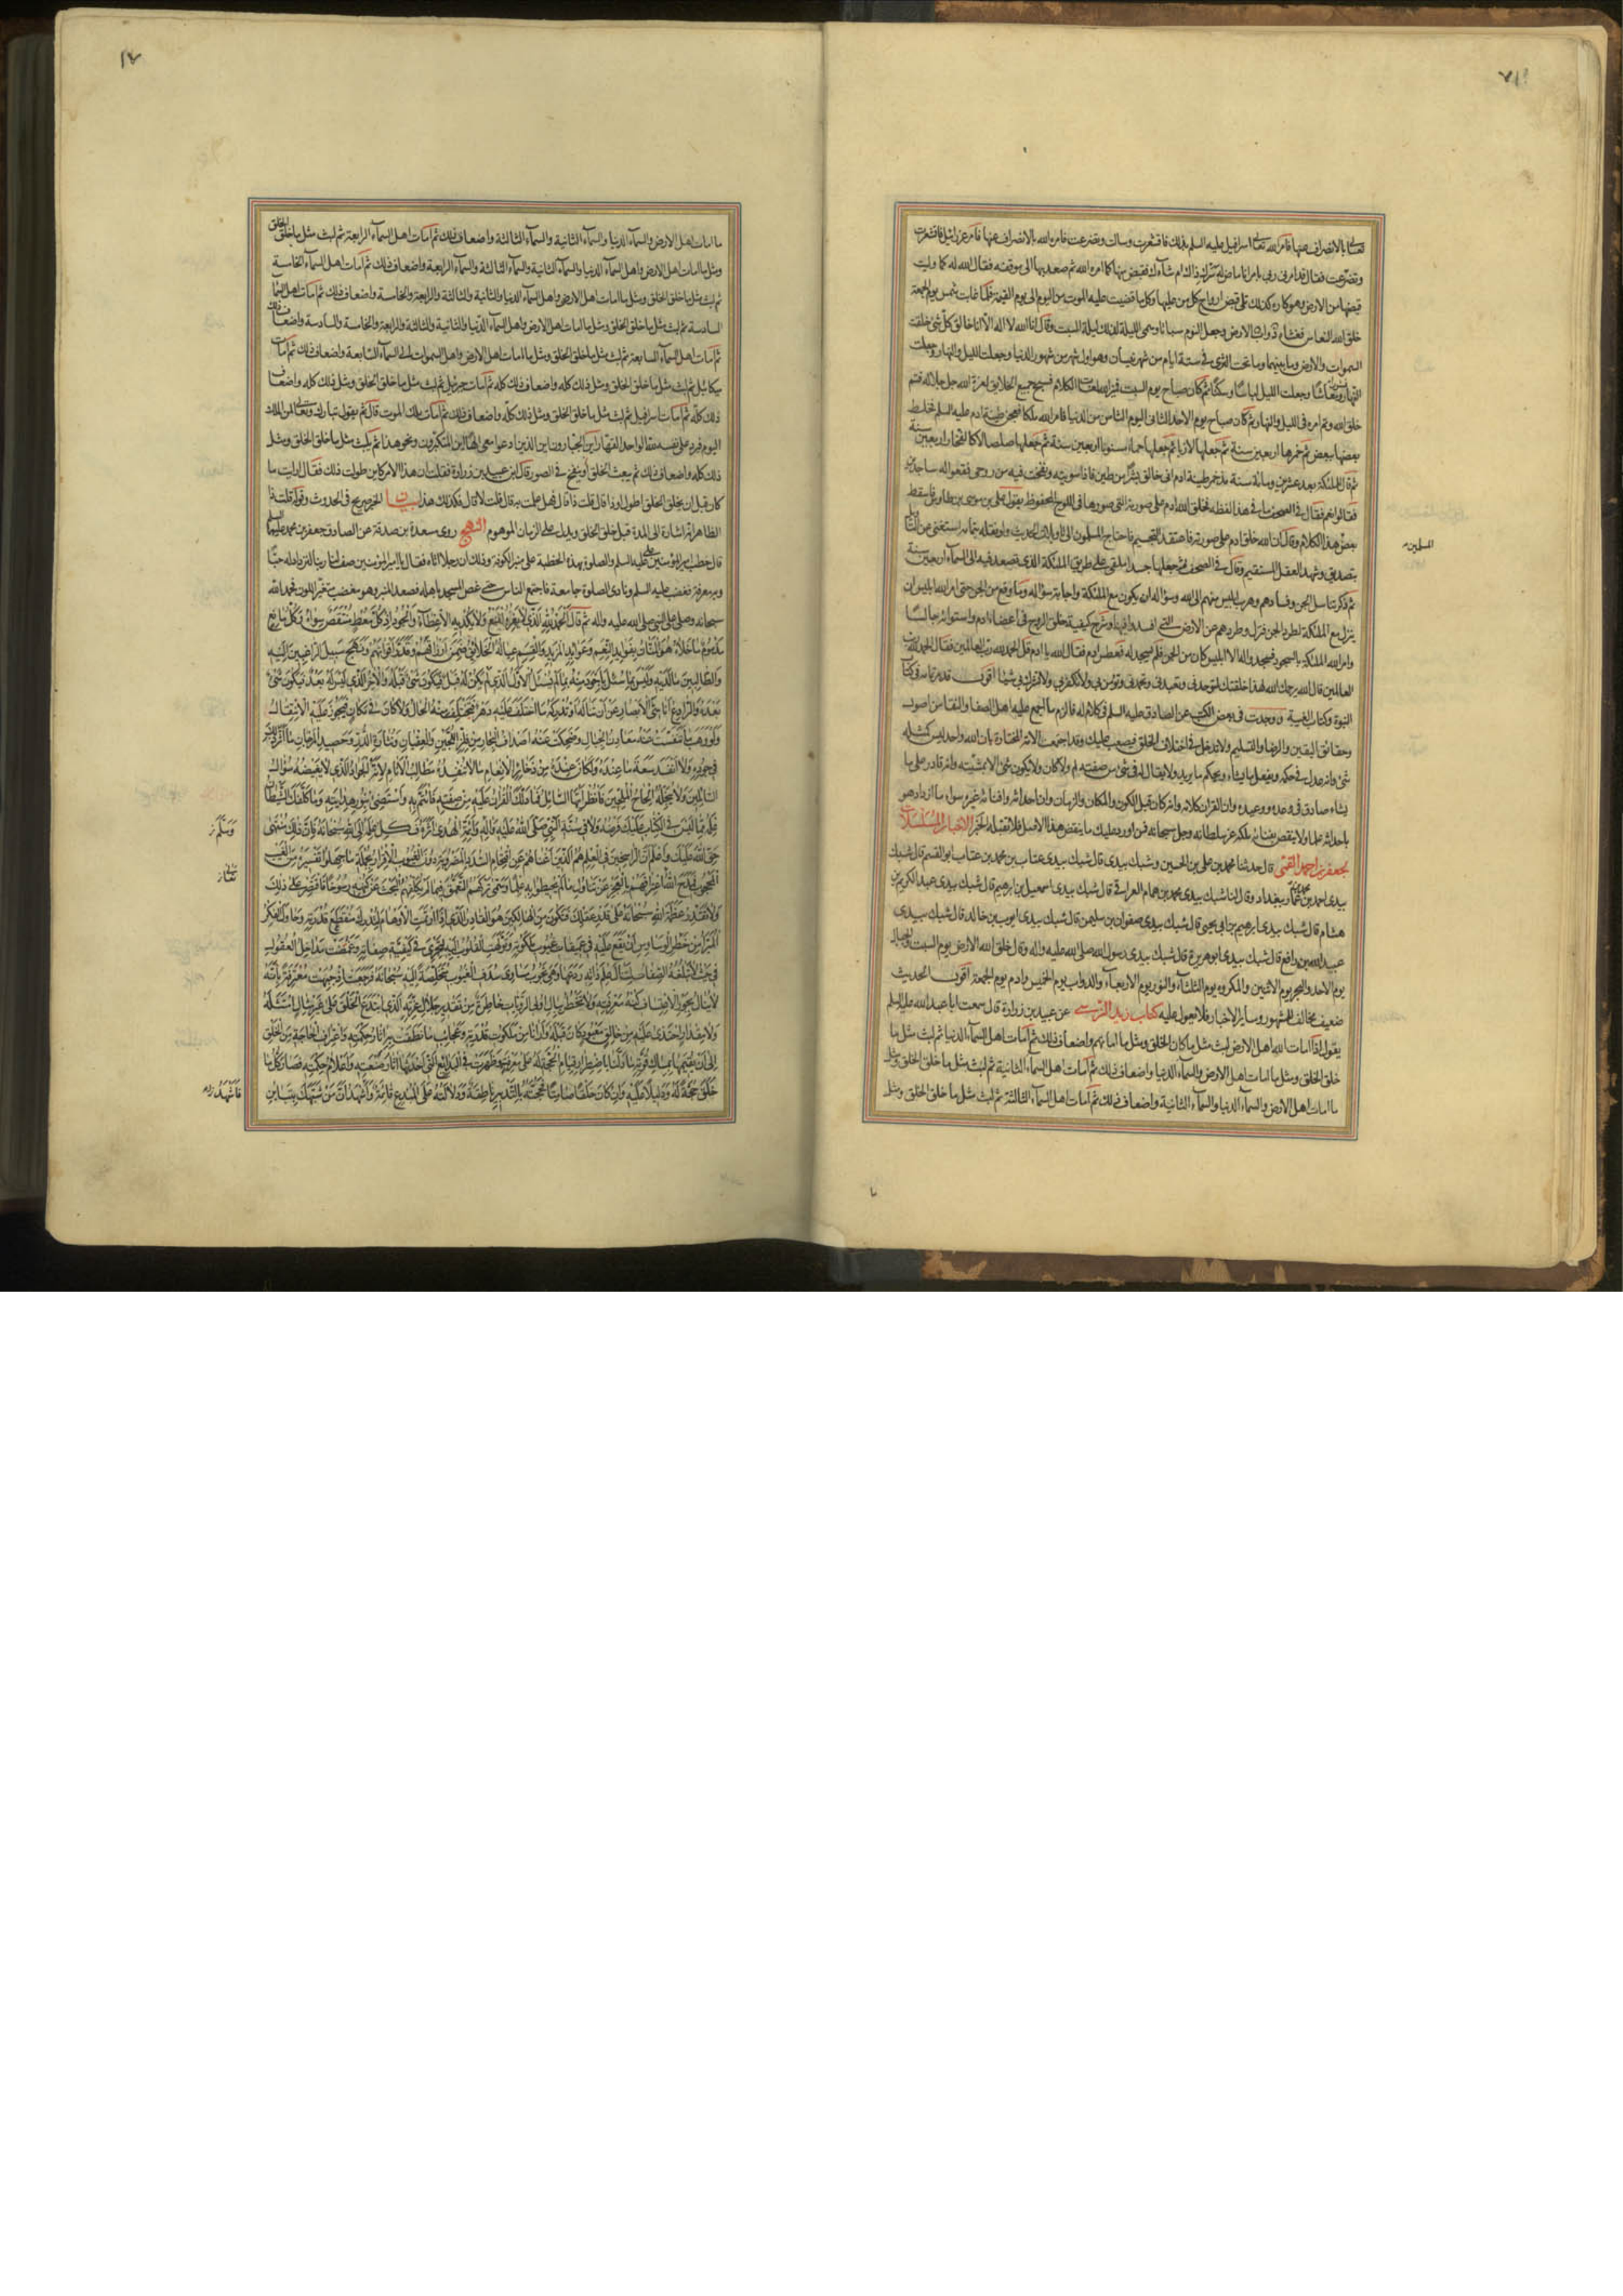 تعالى بالانصراف عنها فامر الله تعالى اسرافيل عليه السلم بذلك فاقشعرت وسالت وتضرعت فامره الله بالانصراف عنها فامر عزرائيل فاقشعرت
وتضرعت فقال قد امرنى ربى بامر انا ماض له سرك ذاك ام شاءك فقبض منها كما امره الله ثم صعد بها الى موقفه فقال الله له كما وليت
قبضها من الارض وهو كاره كذلك تلى قبض ارواح كل من عليها وكل ما قضيت عليه الموت من اليوم الى يوم القيمة فلما غابت شمس يوم الجمعة
خلق الله النعاس فغشاه دواب الارض وجعل النوم سباتا وسمى الليلة لذلك ليلة السبت وقال انا الله لا اله الا انا خالق كل شئ خلقت
السموات والارض وما بينهما وما تحت الثرى فى ستة ايام من شهر نيسان وهو اول شهر من شهور الدنيا وجعلت الليل والنهار وجعلت
النهار نشورا ومعاشا وجعلت الليل لباسا وسكنا ثم كان صباح يوم السبت فميز الله لغات الكلام فسبح جميع الخلايق لعزة الله جل جلاله فتم
خلق الله وتم امره فى الليل والنهار ثم كان صباح يوم الاحد الثانى اليوم الثامن من الدنيا فامر الله ملكا فعجن طينة ادم عليه السلم فخلط
بعضها ببعض ثم خمرها اربعين سنة ثم جعلها لازبا ثم جعلها حماء مسنونا اربعين سنة ثم جعلها صلصالا كالفخار اربعين سنة
ثم قال للملئكة بعد عشرين ومائة سنة مذ خمر طينة ادم انى خالق بشرا من طين فاذا سويته ونفخت فيه من روحى فقعوا له ساجدين
فقالوا نعم فقال فى الصحف ما هذا لفظه فخلق الله ادم على صورته التى صورها فى اللوح المحفوظ يقول على بن موسى بن طاوس فاسقط
بعض هذا الكلام وقال ان الله خلق ادم على صورته فاعتقد التجسيم فاحتاج المسلمون الى تاويلات الحديث ولو نقله بتمامه استغنى عن التاويل
المسلمين
بتصديق وشهد العقل المستقيم وقال فى الصحف ثم جعلها جسدا ملقى على طريق الملئكة الذى تصعد فيه الى السماء اربعين سنة
ثم ذكر تناسل الجن وفسادهم وهرب ابليس منهم الى الله وسؤاله ان يكون مع الملئكة واجابة سؤاله وما وقع من الجن حتى امر الله ابليس ان
ينزل مع الملئكة لطرد الجن فنزل وطردهم عن الارض التى افسدوا فيها وشرح كيفية خلق الروح فى اعضاء ادم واستوائه جالسا
وامر الله الملئكة بالسجود فسجدوا له الا ابليس كان من الجن فلم يسجد له فعطس ادم فقال الله يا ادم قل الحمد لله رب العالمين فقال الحمد لله رب
العالمين قال الله يرحمك الله لهذا خلقتك لتوحدنى وتعبدنى وتحمدنى وتؤمن بى ولا تكفر بى ولا تشرك بى شيئا اقول قد مر تمامه فى كتاب
النبوة وكتاب الغيبة ووجدت فى بعض الكتب عن الصادق عليه السلم فى كلام له فالزم ما اجمع عليه اهل الصفا والنقا من اصول
وحقايق اليقين والرضا والتسليم ولا تدخل فى اختلاف الخلق فيصعب عليك وقد اجمعت الامة المختارة بان الله واحد ليس كمثله
شئ وانه عدل فى حكمه ويفعل ما يشاء ويحكم ما يريد ولا يقال له فى شئ من صفته لم ولا كان ولا يكون شئ الا بمشيته وانه قادر على ما
يشاء صادق فى وعده ووعيده وان القران كلامه وانه كان قبل الكون والمكان والزمان وان احداثه وافنائه غيره سواء ما ازداد هو
باحداثه علما ولا ينقص بفنائه ملكه عز سلطانه وجل سبحانه فمن اورد عليك ما ينقض هذا الاصل فلا تقبله الخبر الاخبار المسلسلات
لجعفر بن احمد القمى قال حدثنا محمد بن على بن الحسين وشبك بيدى قال شبك بيدى عتاب بن محمد بن عتاب ابو القسم قال شبك
بيدى احمد بن محمد بن عمار ببغداد وقال لنا شبك بيدى محمد بن همام العراقى قال شبك بيدى اسمعيل بن ابرهيم قال شبك بيدى عبد الكريم بن
هشام قال شبك بيدى ابرهيم بن ابى يحيى قال شبك بيدى صفوان بن سليمن قال شبك بيدى ايوب بن خالد قال شبك بيدى
عبيد الله بن رافع قال شبك بيدى ابو هريرة قال شبك بيدى رسول الله صلى الله عليه واله وقال خلق الله الارض يوم السبت والجبال
يوم الاحد والشجر يوم الاثنين والمكروه يوم الثلثاء والنور يوم الاربعاء والدواب يوم الخميس وادم يوم الجمعة اقول الحديث
ضعيف مخالف للمشهور وساير الاخبار فلا تعويل عليه كتاب زيد النرسى عن عبيد بن زرارة قال سمعت ابا عبد الله عليه السلم
يقول اذا امات الله اهل الارض لبث مثل ما كان الخلق ومثل ما اماتهم واضعاف ذلك ثم امات اهل السماء الدنيا ثم لبث مثل ما
خلق الخلق ومثل ما امات اهل الارض والسماء الدنيا واضعاف ذلك ثم امات اهل السماء الثانية ثم لبث مثل ما خلق الخلق ومثل
ما امات اهل الارض والسماء الدنيا والسماء الثانية واضعاف ذلك ثم امات اهل السماء الثالثة ثم لبث مثل ما خلق الخلق ومثل
١٧
ما امات اهل الارض والسماء الدنيا والسماء الثانية والسماء الثالثة واضعاف ذلك ثم امات اهل السماء الرابعة ثم لبث مثل ما خلق الخلق
ومثل ما امات اهل الارض واهل السماء الدنيا والسماء الثانية والسماء الثالثة والسماء الرابعة واضعاف ذلك ثم امات اهل السماء الخامسة
ثم لبث مثل ما خلق الخلق ومثل ما امات اهل الارض واهل السماء الدنيا والثانية والثالثة والرابعة والخامسة واضعاف ذلك ثم امات اهل السماء
السادسة ثم لبث مثل ما خلق الخلق ومثل ما امات اهل الارض واهل السماء الدنيا والثانية والثالثة والرابعة والخامسة والسادسة واضعاف ذلك
ثم امات اهل السماء السابعة ثم لبث مثل ما خلق الخلق ومثل ما امات اهل الارض واهل السموات الى السماء السابعة واضعاف ذلك ثم امات
ميكائيل ثم لبث مثل ما خلق الخلق ومثل ذلك كله واضعاف ذلك كله ثم امات جبرئيل ثم لبث مثل ما خلق الخلق ومثل ذلك كله واضعاف
ذلك كله ثم امات اسرافيل ثم لبث مثل ما خلق الخلق ومثل ذلك كله واضعاف ذلك ثم امات ملك الموت قال ثم يقول تبارك وتعالى لمن الملك
اليوم فيرد على نفسه لله الواحد القهار اين الجبارون اين الذين ادعوا معى الها اين المتكبرون ونحو هذا ثم يلبث مثل ما خلق الخلق ومثل
ذلك كله واضعاف ذلك ثم يبعث الخلق او ينفخ فى الصور قال عبيد بن زرارة فقلت ان هذا الامر كاين طولت ذلك فقال ارايت ما
كان قبل ان يخلق الخلق اطول او ذا قال قلت ذا قال فهل علمت به قال قلت لا قال فكذلك هذا بيان الخبر صريح فى الحدوث وقوله قلت ذا
الظاهر انه اشارة الى المدة قبل خلق الخلق ويدل على الزمان الموهوم النهج روى مسعدة بن صدقة عن الصادق جعفر بن محمد عليهما السلم
قال خطب امير المؤمنين على عليه السلم والصلوة بهذه الخطبة على منبر الكوفة وذلك ان رجلا اتاه فقال يا امير المؤمنين صف لنا ربنا لنزداد له حبا
وبه معرفة فغضب عليه السلم ونادى الصلوة جامعة فاجتمع الناس حتى غص المسجد باهله فصعد المنبر وهو مغضب متغير اللون فحمد الله
سبحانه وصلى على النبى صلى الله عليه واله ثم قال الحمد لله الذى لا يفره المنع ولا يكديه الاعطاء والجود اذ كل معط منتقص سواه وكل مانع
مذموم ما خلاه هو المنان بفوايد النعم وعوايد المزيد والقسم عياله الخلائق ضمن ارزاقهم وقدر اقواتهم ونهج سبيل الراغبين اليه
والطالبين ما لديه وليس بما سئل باجود منه بما لم يسئل الاول الذى لم يكن له قبل فيكون شئ قبله والاخر الذى ليس له بعد فيكون شئ
بعده والرادع اناسى الابصار عن ان تناله او تدركه ما اختلف عليه دهر فيختلف منه الحال ولا كان فى مكان فيجوز عليه الانتقال
ولو وهب ما تنفست عنه معادن الجبال وضحكت عنه اصداف البحار من فلز اللجين والعقيان ونثارة الدر وحصيد المرجان ما اثر ذلك
فى جوده ولا انفد سعة ما عنده ولكان عنده من ذخائر الانعام ما لا تنفده مطالب الانام لانه الجواد الذى لا يغيضه سؤال
السائلين ولا يبخله الحاح الملحين فانظر ايها السائل فما دلك القران عليه من صفته فائتم به واستضئ بنور هدايته وما كلفك الشيطان
علمه مما ليس فى الكتاب عليك فرضه ولا فى سنة النبى صلى الله عليه واله وائمة الهدى اثره فكل علمه الى الله سبحانه فان ذلك منتهى
وسلم
حق الله عليك واعلم ان الراسخين فى العلم هم الذين اغناهم عن اقتحام السدد المضروبة دون الغيوب الاقرار بجملة ما جهلوا تفسيره من الغيب
المحجوب فمدح الله اعترافهم بالعجز عن تناول ما لم يحيطوا به علما وسمى تركهم التعمق فيما لم يكلفهم البحث عن كنهه رسوخا فاقتصر على ذلك
تعالى
ولا تقدر عظمة الله سبحانه على قدر عقلك فتكون من الهالكين هو القادر الذى اذا ارتمت الاوهام لتدرك منقطع قدرته وحاول الفكر
المبرا من خطر الوساوس ان يقع عليه فى عميقات غيوب ملكوته وتولهت القلوب اليه لتجرى فى كيفية صفاته وغمضت مداخل العقول
فى حيث لا تبلغه الصفات لتنال علم ذاته ردعها وهى تجوب مهاوى سدف الغيوب متخلصة اليه سبحانه فرجعت اذ جبهت معترفة بانه
لا ينال بجور الاعتساف كنه معرفته ولا تخطر ببال اولى الرويات خاطرة من تقدير جلال عزته الذى ابتدع الخلق على غير مثال امتثله
ولا مقدار احتذى عليه من خالق معبود كان قبله وارانا من ملكوت قدرته وعجائب ما نطقت به اثار حكمته واعتراف الحاجة من الخلق
الى ان يقيمها بمساك قوته ما دلنا باضطرار قيام الحجة له على معرفته وظهرت فى البدايع التى احدثها اثار صنعته واعلام حكمته فصار كل ما
خلق حجة له ودليلا عليه وان كان خلقا صامتا فحجته بالتدبير ناطقة ودلالته على المبدع قائمة واشهد ان من شبهك بتباين
فاشهد